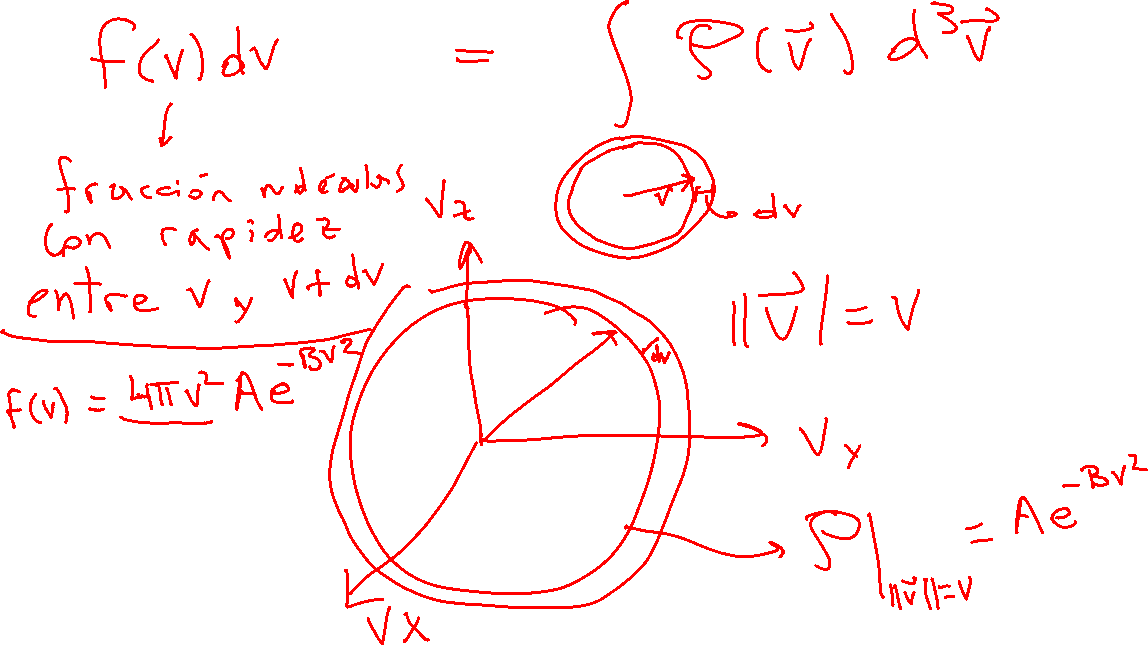 f(v)dv = ∫ ρ(v⃗) d³v⃗
v dv
fracción moléculas
con rapidez
entre v y v+dv
f(v) = 4πv² A e^(-Bv²)
Vz
||v⃗| = v
dv
Vy
Vx
ρ|_(||v⃗||=v) = A e^(-Bv²)